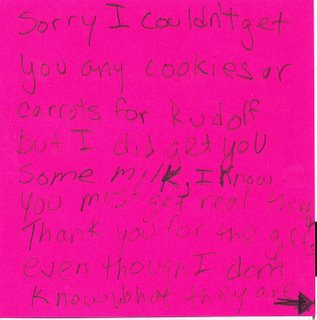 Sorry I couldn't get
you any cookies or
carrots for Rudolf
but I did get you
some milk, I know
you must get real
Thank you for the
even though I don't
know what they are